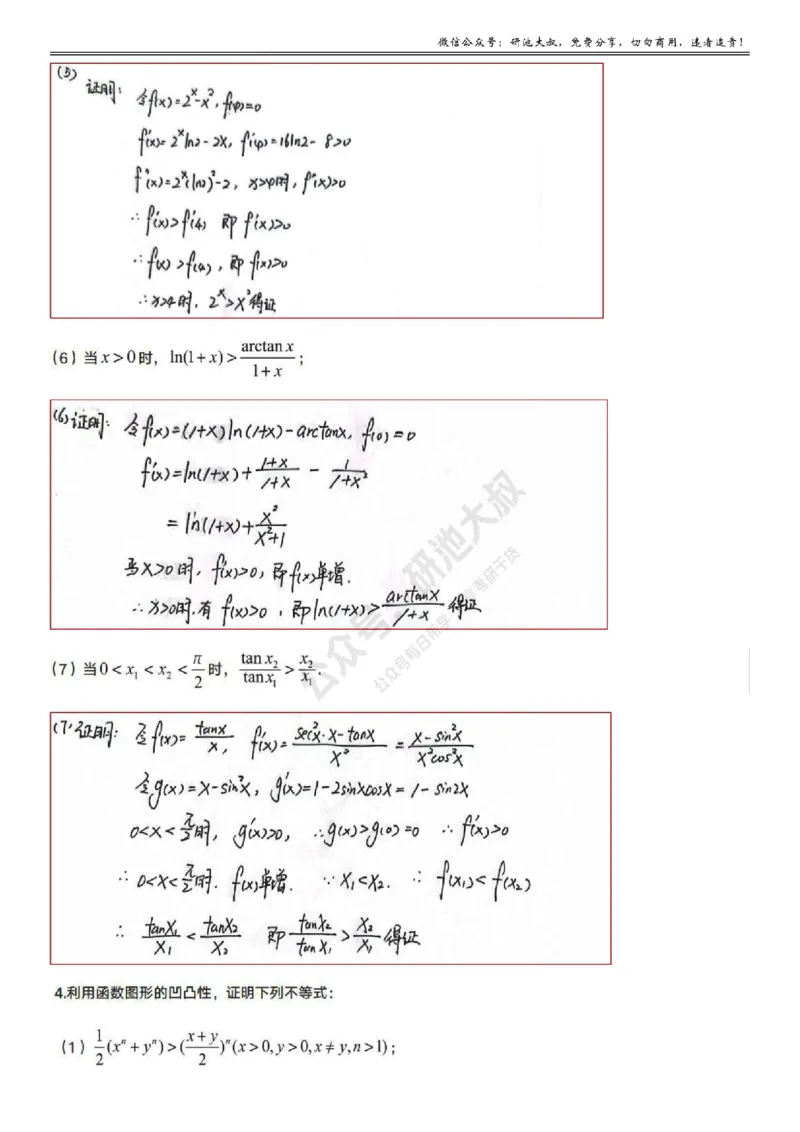 微信公众号：研池大叔，免费分享，切勿商用，违者追责！
(5) 证明：令f(x)=2^x-x^2, f(4)=0
f'(x)=2^x ln2-2x, f'(4)=16ln2-8>0
f''(x)=2^x(ln2)^2-2, x>4时, f''(x)>0
∴f'(x)>f'(4) 即f'(x)>0
∴f(x)>f(4), 即f(x)>0
∴x>4时, 2^x>x^2得证
（6）当x>0时，ln(1+x)>arctan x/(1+x)；
(6)证明：令f(x)=(1+x)ln(1+x)-arctanx, f(0)=0
f'(x)=ln(1+x)+(1+x)/(1+x)-1/(1+x^2)
=ln(1+x)+x^2/(x^2+1)
当x>0时, f'(x)>0, 即f(x)单增.
∴x>0时.有f(x)>0, 即ln(1+x)>arctanx/(1+x) 得证
（7）当0<x₁<x₂<π/2时，tan x₂/tan x₁>x₂/x₁.
(7)证明：令f(x)=tanx/x, f'(x)=(sec^2x·x-tanx)/x^2=(x-sin^2x)/(x^2cos^2x)
令g(x)=x-sin^2x, g'(x)=1-2sinxcosx=1-sin2x
0<x<π/2时, g'(x)>0, ∴g(x)>g(0)=0 ∴f'(x)>0
∴0<x<π/2时.f(x)单增. ∵x₁<x₂. ∴f(x₁)<f(x₂)
∴tanx₁/x₁<tanx₂/x₂ 即tanx₂/tanx₁>x₂/x₁得证
4.利用函数图形的凹凸性，证明下列不等式：
（1）1/2(x^n+y^n)>((x+y)/2)^n(x>0,y>0,x≠y,n>1)；
公众号：研池大叔